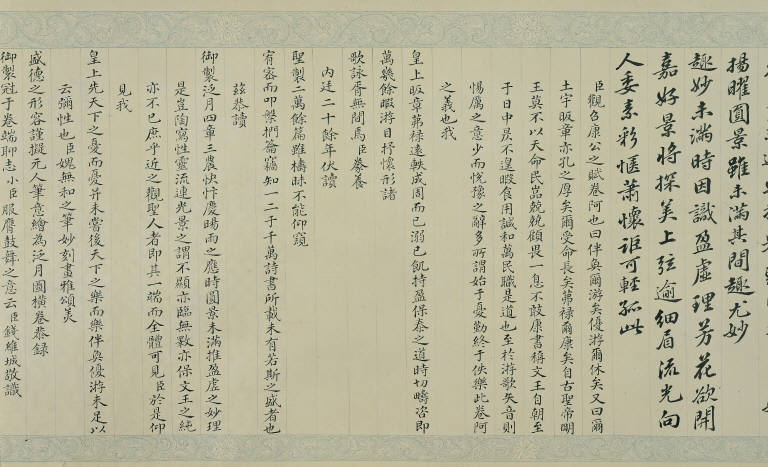 揚曜圓景雖未滿其間趣尤妙
趣妙未滿時因識盈虛理芳花欲開
嘉好景將探美上弦逾細看流光向
人委素彩愜蕭懷詎可輕孤此
臣觀召康公之賦卷阿也曰伴奐爾游矣優游爾休矣又曰爾
土宇昄章亦孔之厚矣爾受命長矣茀祿爾康矣自古聖帝明
王莫不以天命民嵒兢兢顧畏一息不敢康書稱文王自朝至
于日中昃不遑暇食用誠和萬民職是道也至於游歌矢音則
惕厲之意少而悅豫之辭多所謂始于憂勤終于佚樂此卷阿
之義也我
皇上昄章茀祿遠軼成周而己溺己飢持盈保泰之道時切疇咨即
萬幾餘暇游目抒懷形諸
歌詠胥無間焉臣豢養
內廷二十餘年伏讀
聖製二萬餘篇雖檮昧不能仰窺
宥密而叩槃捫籥竊知一二于千萬詩書所載未有若斯之盛者也
茲恭讀
御製泛月四章三農快忭慶暘雨之應時圓景未滿推盈虛之妙理
是豈陶寫性靈流連光景之謂不顯亦臨無斁亦保文王之純
亦不已庶乎近之觀聖人者即其一端而全體可見臣於是仰
見我
皇上先天下之憂而憂并未嘗後天下之樂而樂伴奐優游未足以
云彌性也臣媿無和之筆妙刻畫雅頌爰
盛德之形容謹擬元人筆意繪為泛月圖橫卷恭錄
御製冠于卷端聊志小臣服膺鼓舞之意云臣錢維城敬識